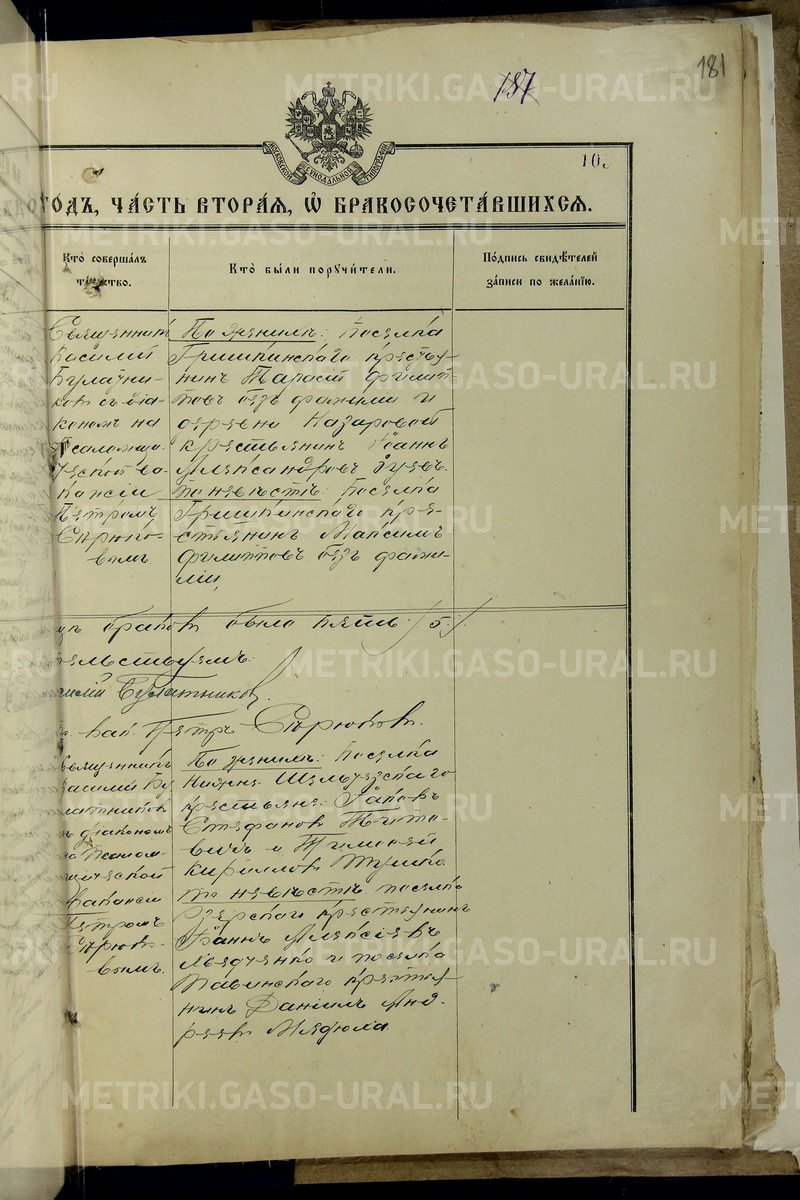 181
187
МОСКОВСКОЙ СИНОДАЛЬНОЙ ТИПОГРАФІИ
10.
ГОДЪ, ЧА́СТЬ ВТОРА́Я, Ѿ БРАКОСОЧЕТА́ВШИХСЯ.
Кто̀ соверша́лъ та́инство.
Кто̀ бы́ли порꙋчи́тели.
По́дпись свидѣ́телей за́писи по жела́нїю.
Священникъ
Василий
Булатни-
ковъ съ діа-
кономъ на
Псаломщи-
ческой ва-
кансіи
Петромъ
Сѣрюко-
вымъ.
По женихѣ: Поселка
Гришкинскаго кресть-
янинъ Тарасій Филип-
повъ безъ фамиліи и
деревни Назаровой
крестьянинъ Іоаннъ
Александровъ Зуевъ.
По невѣстѣ: Поселка
Гришкинскаго кре-
стьянинъ Максимъ
Филипповъ безъ фами-
ліи
браковъ было пять /5/.
тельствуемъ:
Василій Булатниковъ.
вак. Петръ Сѣрюковъ.
Священникъ
Василий Бу-
латниковъ
съ діакономъ
на Псалом-
щической
вакансіи
Петромъ
Сѣрюко-
вымъ.
По женихѣ: Поселка
крестьяне: Іаковъ
Стефановъ
и
Кирилловъ
По невѣстѣ: поселка
крестьянинъ
Іоаннъ Алексіевъ
и поселка
Тавинскаго крестья-
нинъ Даніилъ Анд-
реевъ
METRIKI.GASO-URAL.RU